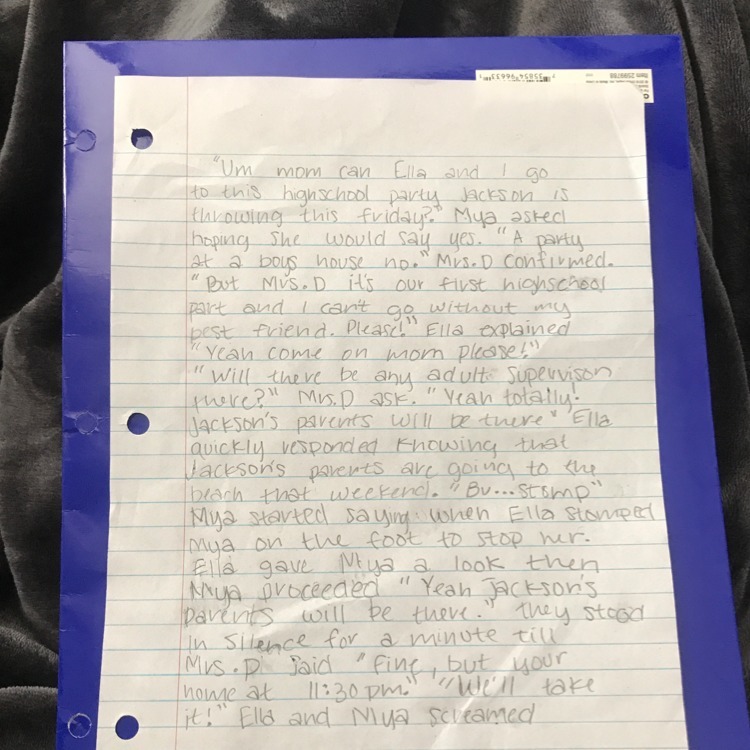 "Um mom can Ella and I go
to this highschool party Jackson is
throwing this friday?" Mya asked
hoping she would say yes. "A party
at a boys house no." Mrs.D confirmed.
"But Mrs.D it's our first highschool
part and I can't go without my
best friend. Please!" Ella explained
"Yeah come on mom please!"
"Will there be any adult supervison
there?" Mrs.D ask. "Yeah totally!
Jackson's parents will be there" Ella
quickly responded knowing that
Jackson's parents are going to the
beach that weekend. "Bu...stomp"
Mya started saying when Ella stomped
Mya on the foot to stop her.
Ella gave Mya a look then
Mya proceeded "Yeah Jackson's
parents will be there." They stood
in silence for a minute till
Mrs.D said "Fine, but your
home at 11:30 pm." "We'll take
it!" Ella and Mya screamed